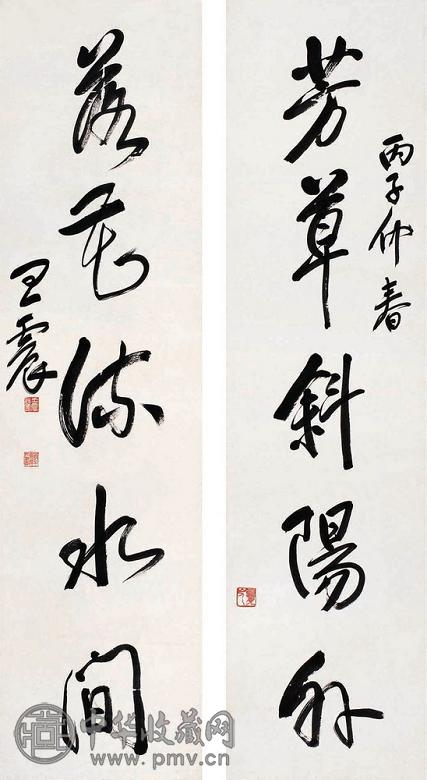 丙子仲春
芳草斜陽外
落花流水間
王震
中华收藏网
www.pmv.cn